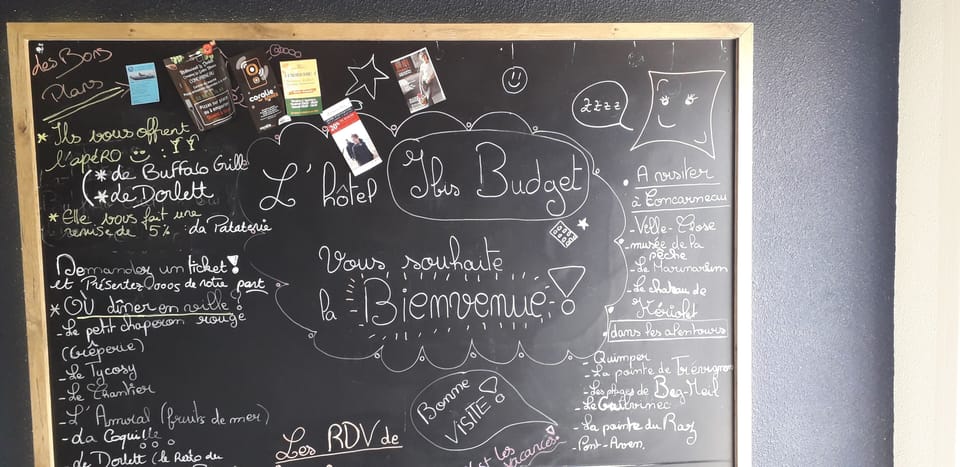 des Bons
Plans
* Ils vous offrent
l'apéro :
(* de Buffalo Grill
(* de Dorlett
* Elle vous fait une
remise de 15% : La Pataterie
Demander un ticket !
et Présentez-vous de notre part
* OÙ dîner en ville :
- Le petit chaperon rouge
(Crêperie)
- Le Tycosy
- Le Chantier
- L'Amiral (fruits de mer)
- La Coquille
- Le Dorlett (le Resto du
coralie
L'hôtel Ibis Budget
Vous souhaite
la Bienvenue !
Bonne
VISITE !
Les RDV de
C'est les
vacances !
zzzz
• A visiter
à Concarneau
- Ville-Close
- musée de la
pêche
- Le Marinarium
- Le chateau de
Kériolet
• dans les alentours
- Quimper
- La pointe de Trévignon
- Les plages de Beg-Meil
- Le Guilvinec
- La pointe du Raz
- Pont-Aven